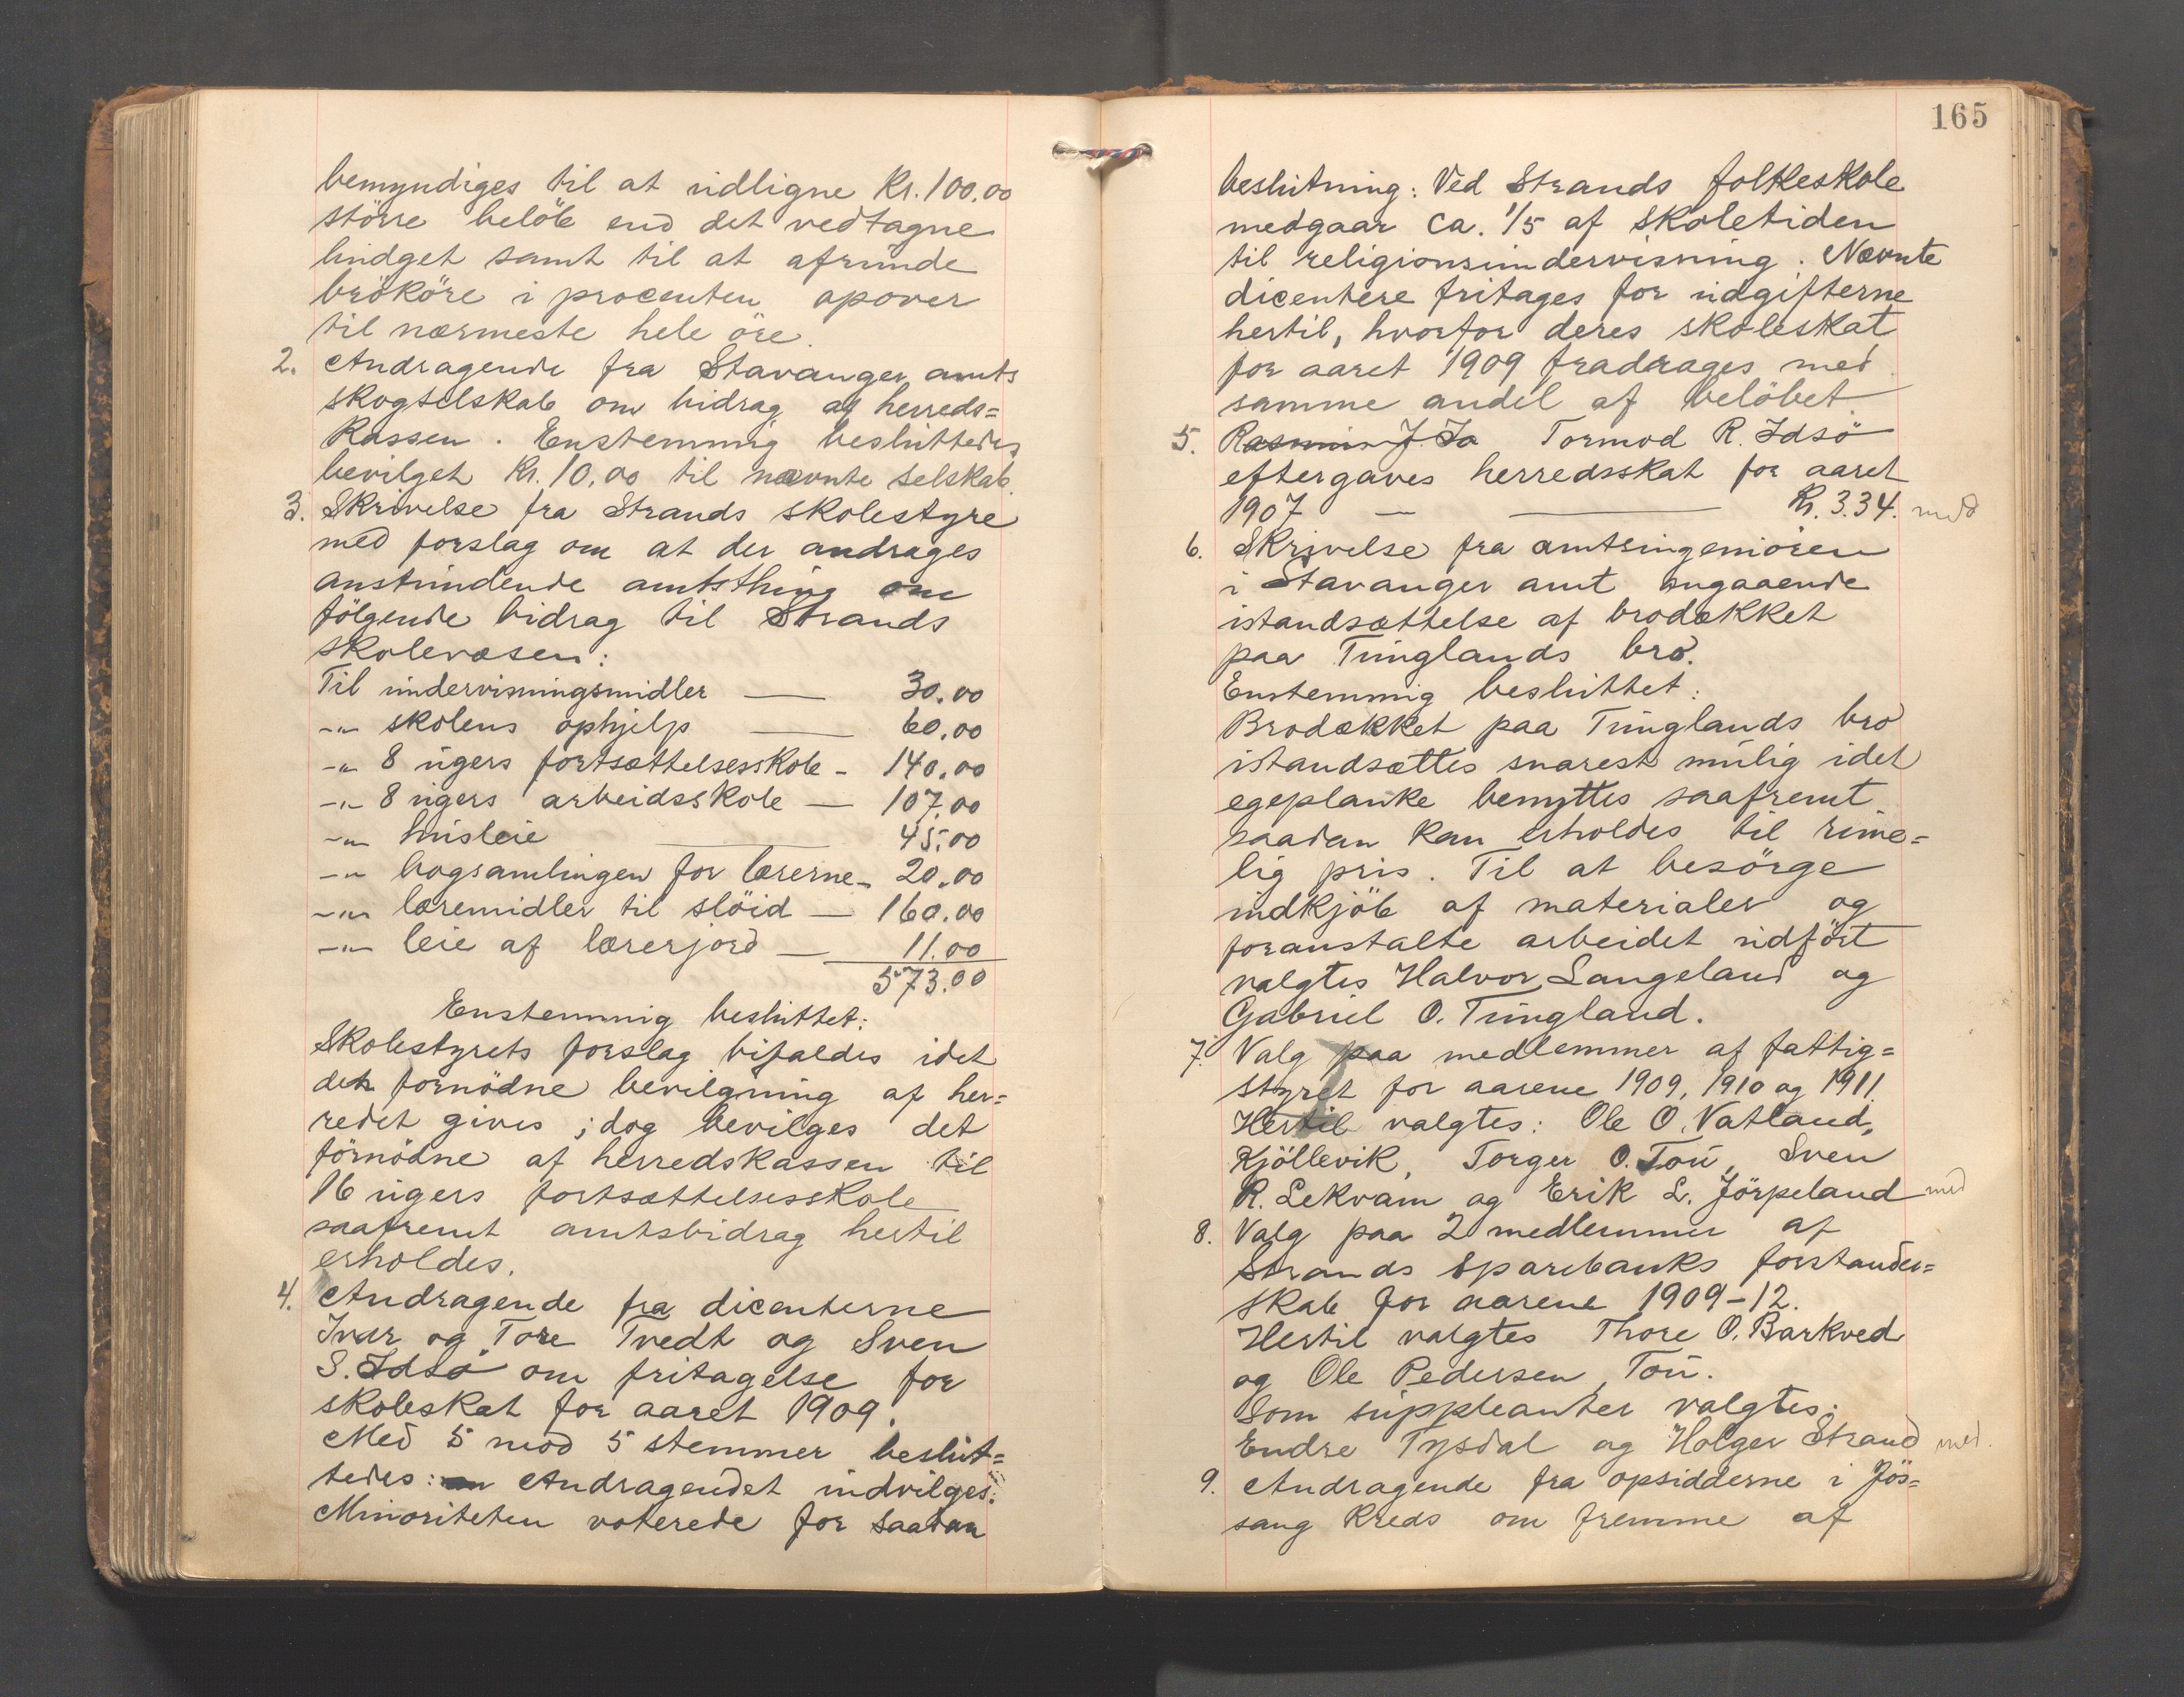 bemyndiges til at udligne Kr. 100.00
större belöb end det vedtagne
budget samt til at afrunde
brököre i procenten opover
til nærmeste hele öre.
2. Andragende fra Stavanger amts
skogselskab om bidrag af herreds=
kassen. Enstemmig besluttedes
bevilget Kr. 10.00 til nævnte selskab.
3. Skrivelse fra Strands skolestyre
med forslag om at der andrages
anstundende amtsthing om
fölgende bidrag til Strands
skolevæsen:
Til undervisningsmidler — 30.00
-"- skolens ophjelp — 60.00
-"- 8 ugers fortsættelsesskole - 140.00
-"- 8 ugers arbeidsskole — 107.00
-"- husleie — 45.00
-"- bogsamlingen for lærerne - 20.00
-"- læremidler til slöid — 160.00
-"- leie af lærerjord — 11.00
573.00
Enstemmig besluttet:
Skolestyrets forslag bifaldes idet
den fornödne bevilgning af her=
redet gives; dog bevilges det
förnödne af herredskassen til
16 ugers fortsættelsesskole
saafremt amtsbidrag hertil
erholdes.
4. Andragende fra dicenterne
Ivar og Tore Tvedt og Sven
S. Idsö om fritagelse for
skoleskat for aaret 1909.
Med 5 mod 5 stemmer beslut=
tedes: Andragendet indvilges.
Minoriteten voterede for saadan
165
beslutning: Ved Strands folkeskole
medgaar ca. 1/5 af skoletiden
til religionsundervisning. Nævnte
dicentere fritages for udgifterne
hertil, hvorfor deres skoleskat
for aaret 1909 fradrages med
samme andel af belöbet.
5. Rasmus J. Is Tormod R. Idsö
eftergaves herredsskat for aaret
1907 — — Kr. 3.34. med
6. Skrivelse fra amtsingeniören
i Stavanger amt angaaende
istandsættelse af brodækket
paa Tunglands bro.
Enstemmig besluttet:
Brodækket paa Tunglands bro
istandsættes snarest mulig idet
egeplanke benyttes saafremt
saadan kan erholdes til rime=
lig pris. Til at besörge
indkjöb af materialer og
foranstalte arbeidet udfört
valgtes Halvor Langeland og
Gabriel O. Tungland.
7. Valg paa medlemmer af fattig=
styret for aarene 1909, 1910 og 1911.
Hertil valgtes: Ole O. Vatland,
Kjöllevik, Torger O. Tou, Sven
R. Lekvam og Erik L. Jörpeland med
8. Valg paa 2 medlemmer af
Strands Sparebanks forstander=
skab for aarene 1909-12.
Hertil valgtes Thore O. Barkved
og Ole Pedersen, Tou.
Som suppleanter valgtes:
Endre Tysdal og Holger Strand med.
9. Andragende fra opsidderne i Jös=
sang kreds om fremme af